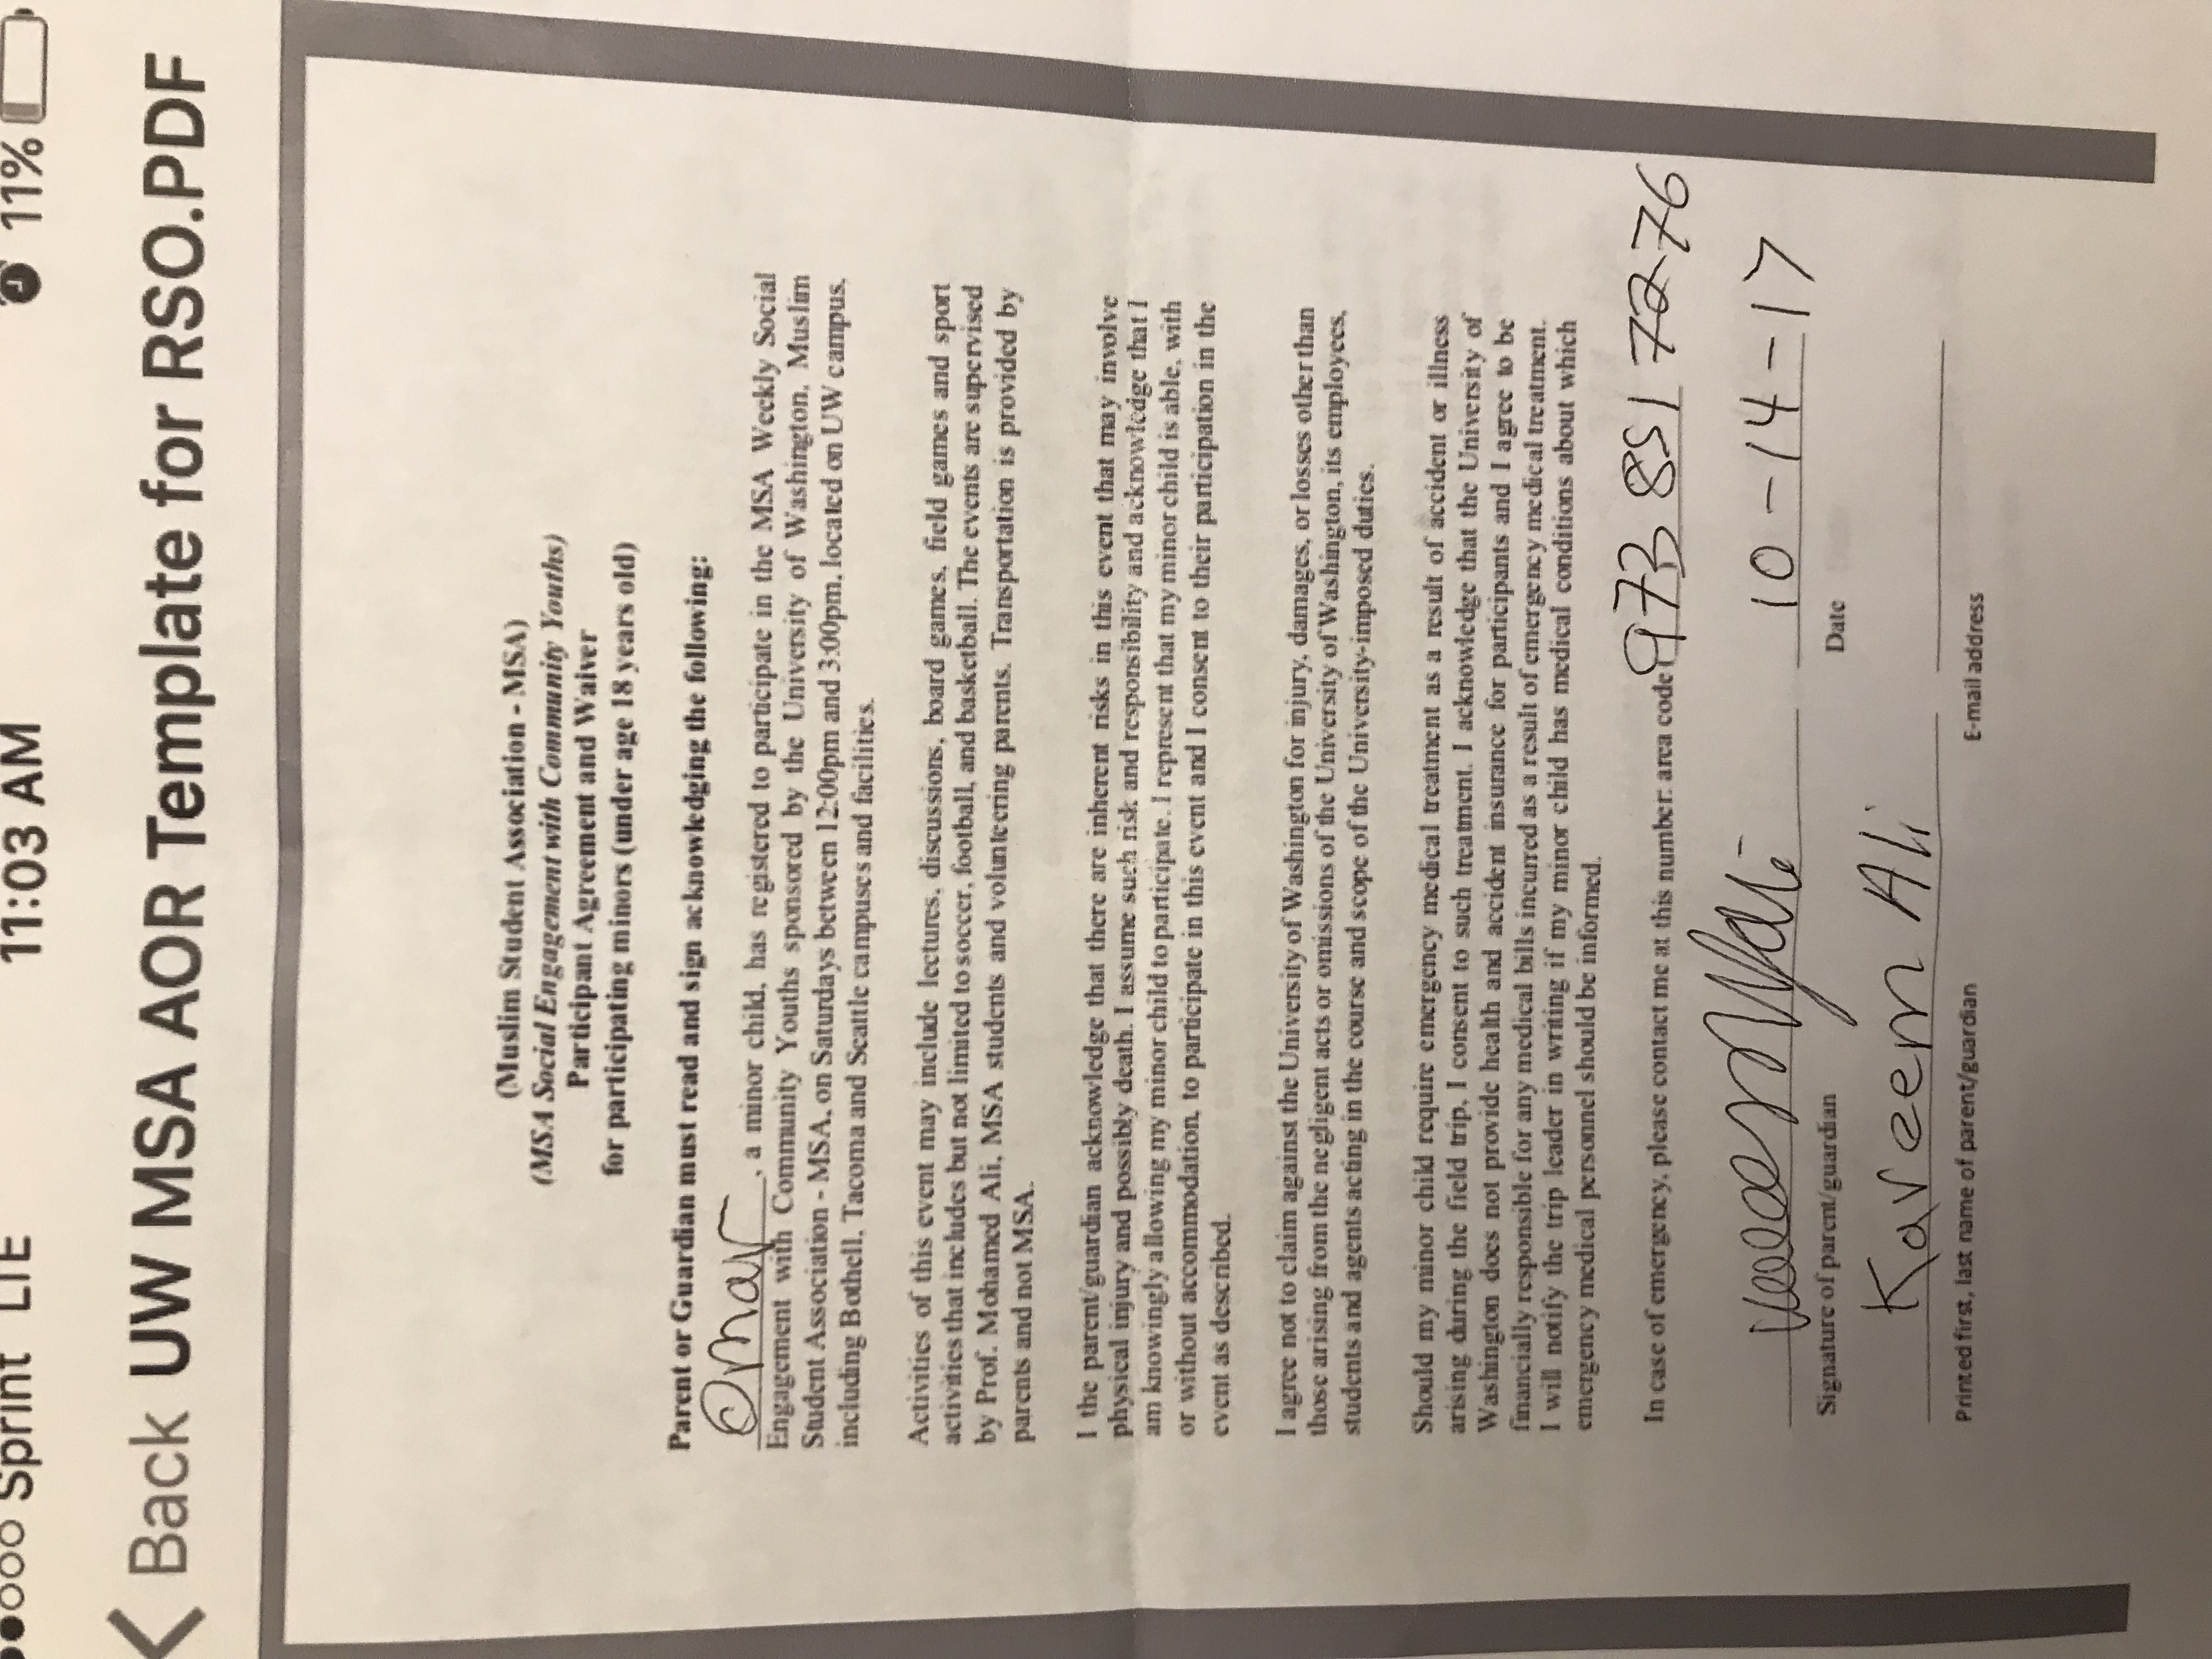 Sprint LTE 11:03 AM 11%
Back UW MSA AOR Template for RSO.PDF
(Muslim Student Association - MSA)
(MSA Social Engagement with Community Youths)
Participant Agreement and Waiver
for participating minors (under age 18 years old)
Parent or Guardian must read and sign acknowledging the following:
Omar, a minor child, has registered to participate in the MSA Weekly Social
Engagement with Community Youths sponsored by the University of Washington, Muslim
Student Association - MSA, on Saturdays between 12:00pm and 3:00pm, located on UW campus,
including Bothell, Tacoma and Seattle campuses and facilities.
Activities of this event may include lectures, discussions, board games, field games and sport
activities that includes but not limited to soccer, football, and basketball. The events are supervised
by Prof. Mohamed Ali, MSA students and volunteering parents. Transportation is provided by
parents and not MSA.
I the parent/guardian acknowledge that there are inherent risks in this event that may involve
physical injury and possibly death. I assume such risk and responsibility and acknowledge that I
am knowingly allowing my minor child to participate. I represent that my minor child is able, with
or without accommodation, to participate in this event and I consent to their participation in the
event as described.
I agree not to claim against the University of Washington for injury, damages, or losses other than
those arising from the negligent acts or omissions of the University of Washington, its employees,
students and agents acting in the course and scope of the University-imposed duties.
Should my minor child require emergency medical treatment as a result of accident or illness
arising during the field trip, I consent to such treatment. I acknowledge that the University of
Washington does not provide health and accident insurance for participants and I agree to be
financially responsible for any medical bills incurred as a result of emergency medical treatment.
I will notify the trip leader in writing if my minor child has medical conditions about which
emergency medical personnel should be informed.
In case of emergency, please contact me at this number: area code (973 851 7276
10-14-17
Signature of parent/guardian Date
Kareem Ali
Printed first, last name of parent/guardian E-mail address